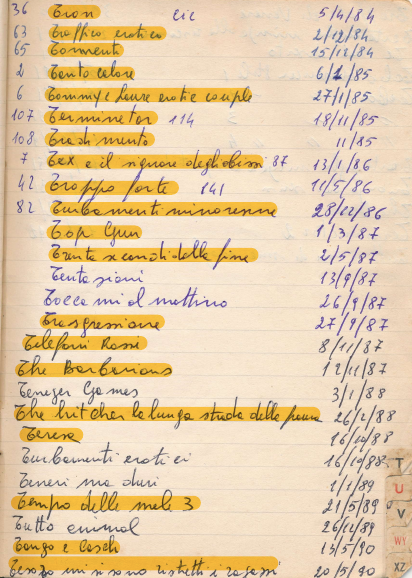 36 Tron cic 5/4/84
63 Traffico erotico 2/12/84
65 Tormenti 15/12/84
2 Tanto calore 6/1/85
6 Tommy e Laure erotic couple 27/1/85
107 Terminator 114 18/11/85
108 Tradimento 11/85
7 Tex e il signore degli abissi 87 13/1/86
42 Troppo forte 141 11/5/86
82 Turbamenti minorenne 28/12/86
Top Gun 1/3/87
Trenta secondi dalla fine 2/5/87
Tentazioni 13/9/87
Toccami al mattino 26/9/87
Trasgressione 27/9/87
Telefoni Rossi 8/11/87
The Barbarians 12/11/87
Teneger Games 3/1/88
The hitcher la lunga strada della paura 26/2/88
Teresa 16/10/88
Turbamenti erotici 16/10/88
Teneri ma duri 1/1/89
Tempo delle mele 3 21/5/89
Tutto animal 26/12/89
Tango e Cash 13/5/90
Tesoro mi sono ristretti i ragazzi 20/5/90
T
U
V
WY
XZ